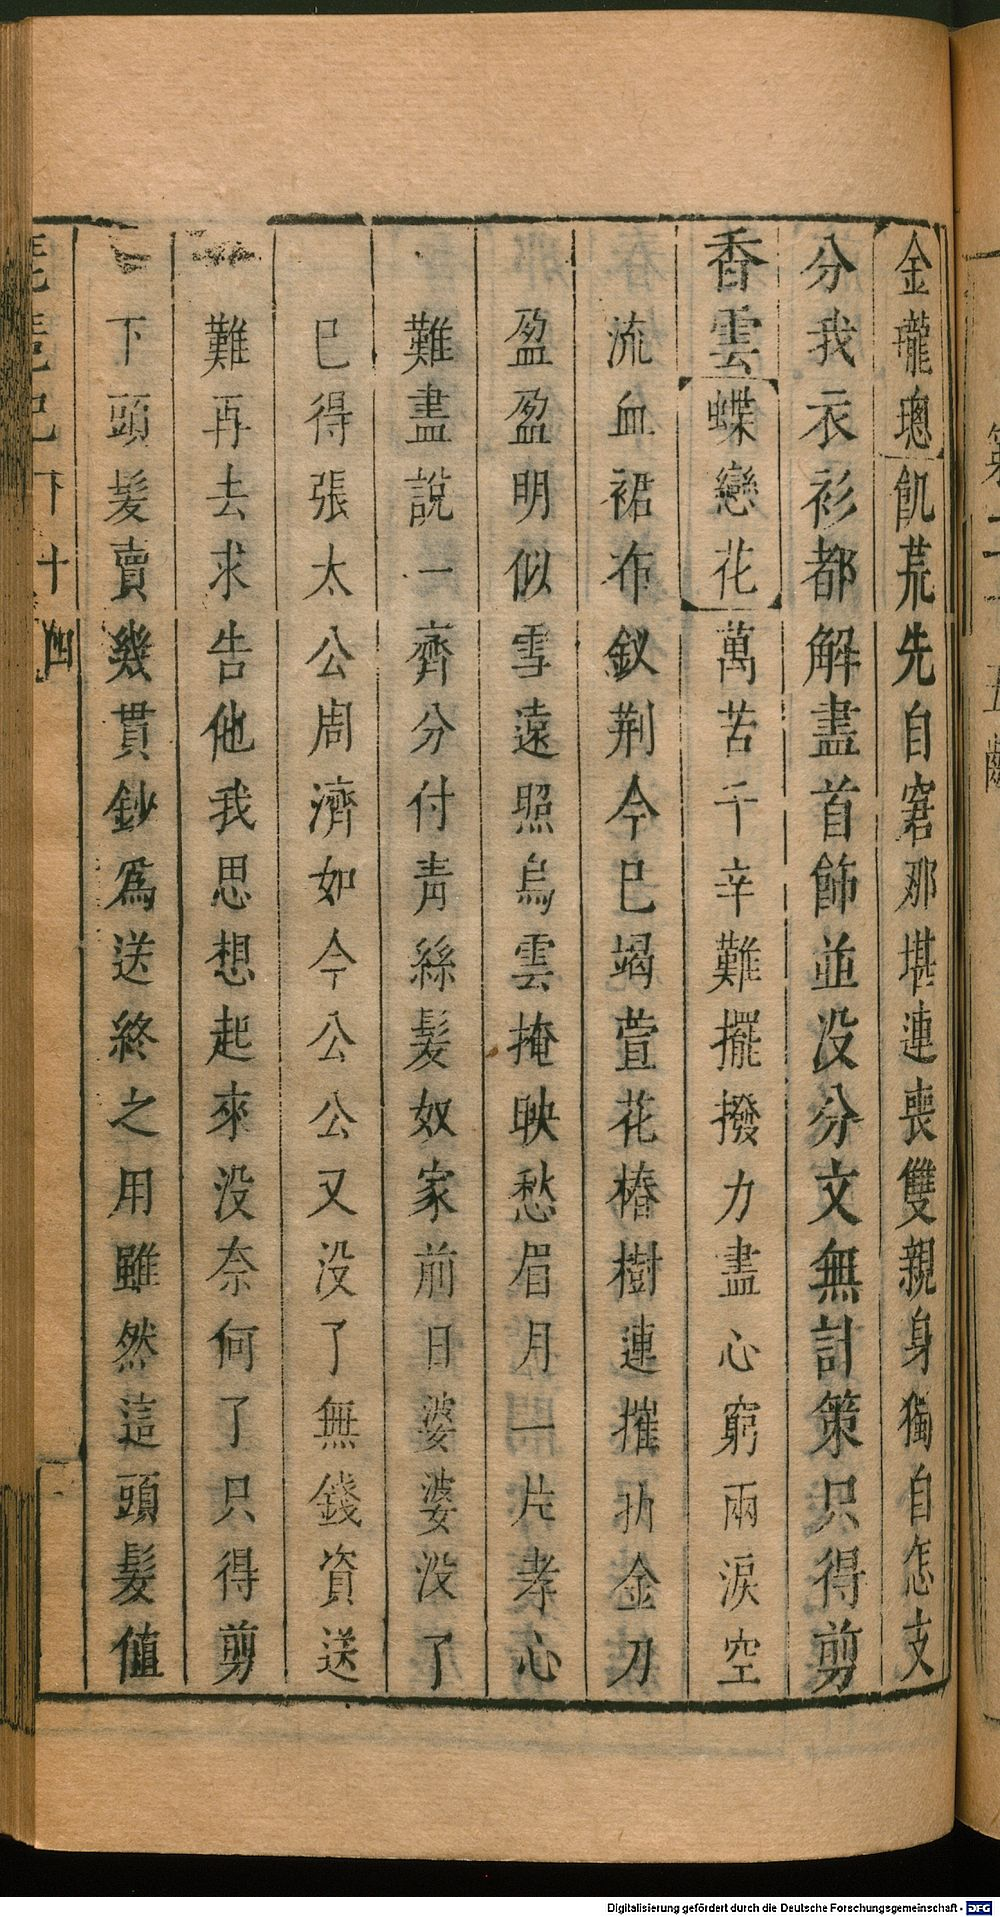 金瓏璁飢荒先自窘那堪連喪雙親身獨自怎支
分我衣衫都解盡首飾並没分文無計策只得剪
香雲蝶戀花萬苦千辛難擺撥力盡心窮兩淚空
流血裙布釵荆今巳竭萱花椿樹連摧折金刀
盈盈明似雪遠照烏雲掩映愁眉月一片孝心
難盡說一齊分付靑絲髮奴家前日婆婆没了
巳得張太公周濟如今公公又没了無錢資送
難再去求告他我思想起來没奈何了只得剪
下頭髮賣幾貫鈔爲送終之用雖然這頭髮値
琵琶記下 十四
Digitalisierung gefördert durch die Deutsche Forschungsgemeinschaft - DFG